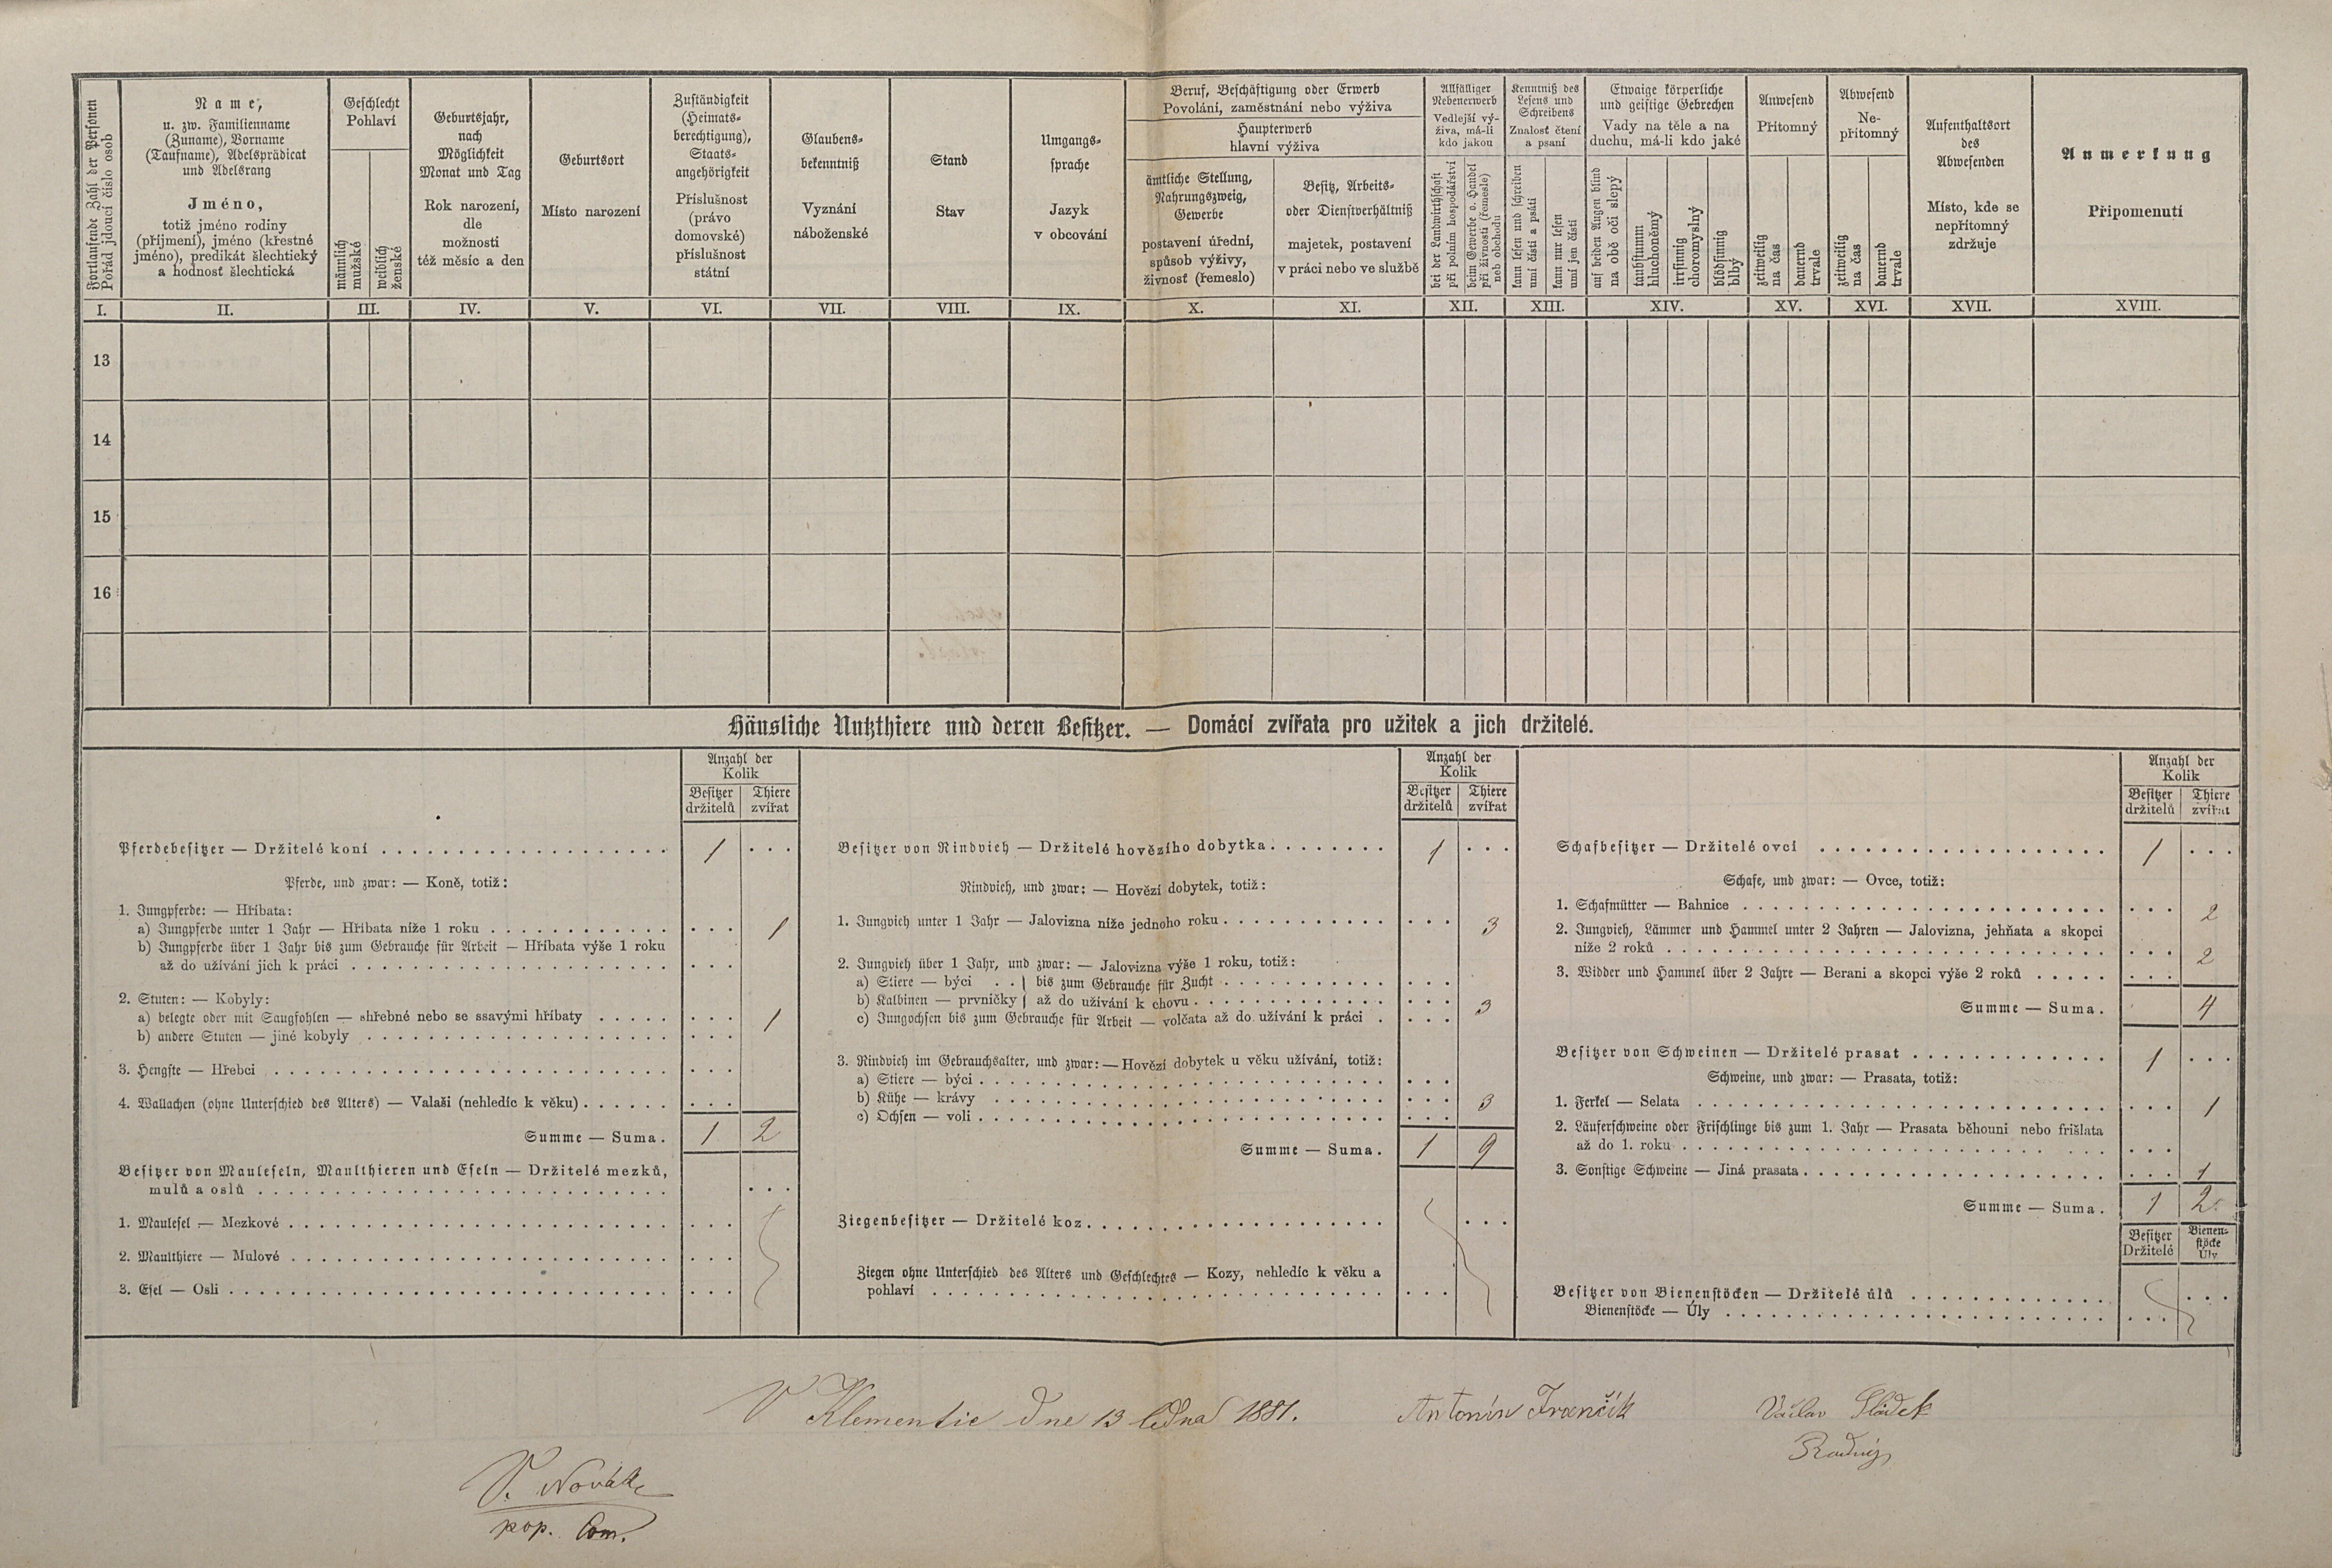 Fortlaufende Zahl der Personen
Pořád jdoucí číslo osob
Name,
u. zw. Familienname
(Zuname), Vorname
(Taufname), Adelsprädicat
und Adelsrang
Jméno,
totiž jméno rodiny
(příjmení), jméno (křestné
jméno), predikát šlechtický
a hodnosť šlechtická
Geschlecht
Pohlaví
männlich
mužské
weiblich
ženské
Geburtsjahr,
nach
Möglichkeit
Monat und Tag
Rok narození,
dle
možnosti
též měsíc a den
Geburtsort
Místo narození
Zuständigkeit
(Heimats-
berechtigung),
Staats-
angehörigkeit
Příslušnost
(právo
domovské)
příslušnost
státní
Glaubens-
bekenntniß
Vyznání
náboženské
Stand
Stav
Umgangs-
sprache
Jazyk
v obcování
Beruf, Beschäftigung oder Erwerb
Povolání, zaměstnání nebo výživa
Haupterwerb
hlavní výživa
ämtliche Stellung,
Nahrungszweig,
Gewerbe
postavení úřední,
spůsob výživy,
živnosť (řemeslo)
Besitz, Arbeits-
oder Dienstverhältniß
majetek, postavení
v práci nebo ve službě
Allfälliger
Nebenerwerb
Vedlejší vý-
živa, má-li
kdo jakou
bei der Landwirthschaft
při polním hospodářství
beim Gewerbe o. Handel
při živnosti (řemesle)
neb obchodu
Kenntniß des
Lesens und
Schreibens
Znalosť čtení
a psaní
kann lesen und schreiben
umí čísti a psáti
kann nur lesen
umí jen čísti
Etwaige körperliche
und geistige Gebrechen
Vady na těle a na
duchu, má-li kdo jaké
auf beiden Augen blind
na obě oči slepý
taubstumm
hluchoněmý
irrsinnig
choromyslný
blödsinnig
blbý
Anwesend
Přítomný
zeitweilig
na čas
dauernd
trvale
Abwesend
Ne-
přítomný
zeitweilig
na čas
dauernd
trvale
Aufenthaltsort
des
Abwesenden
Místo, kde se
nepřítomný
zdržuje
Anmerkung
Připomenutí
I. II. III. IV. V. VI. VII. VIII. IX. X. XI. XII. XIII. XIV. XV. XVI. XVII. XVIII.
13
14
15
16
Häusliche Nutzthiere und deren Besitzer. — Domácí zvířata pro užitek a jich držitelé.
Anzahl der
Kolik
Besitzer Thiere
držitelů zvířat
Pferdebesitzer — Držitelé koní . . . 1 . . .
Pferde, und zwar: — Koně, totiž:
1. Jungpferde: — Hříbata:
a) Jungpferde unter 1 Jahr — Hříbata níže 1 roku . . . 1
b) Jungpferde über 1 Jahr bis zum Gebrauche für Arbeit — Hříbata výše 1 roku
až do užívání jich k práci . . .
2. Stuten: — Kobyly:
a) belegte oder mit Saugfohlen — shřebné nebo se ssavými hříbaty . . . 1
b) andere Stuten — jiné kobyly . . .
3. Hengste — Hřebci . . .
4. Wallachen (ohne Unterschied des Alters) — Valaši (nehledíc k věku) . . .
Summe — Suma. 1 2
Besitzer von Mauleseln, Maulthieren und Eseln — Držitelé mezků,
mulů a oslů . . .
1. Maulesel — Mezkové . . .
2. Maulthiere — Mulové . . .
3. Esel — Osli . . .
Anzahl der
Kolik
Besitzer Thiere
držitelů zvířat
Besitzer von Rindvieh — Držitelé hovězího dobytka . . . 1 . . .
Rindvieh, und zwar: — Hovězí dobytek, totiž:
1. Jungvieh unter 1 Jahr — Jalovizna níže jednoho roku . . . 3
2. Jungvieh über 1 Jahr, und zwar: — Jalovizna výše 1 roku, totiž:
a) Stiere — býci . . } bis zum Gebrauche für Zucht . . .
b) Kalbinen — prvničky } až do užívání k chovu . . . 3
c) Jungochsen bis zum Gebrauche für Arbeit — volčata až do užívání k práci . . .
3. Rindvieh im Gebrauchsalter, und zwar: — Hovězí dobytek u věku užívání, totiž:
a) Stiere — býci . . .
b) Kühe — krávy . . . 3
c) Ochsen — voli . . .
Summe — Suma. 1 9
Ziegenbesitzer — Držitelé koz . . .
Ziegen ohne Unterschied des Alters und Geschlechtes — Kozy, nehledíc k věku a
pohlaví . . .
Anzahl der
Kolik
Besitzer Thiere
držitelů zvířat
Schafbesitzer — Držitelé ovcí . . . 1 . . .
Schafe, und zwar: — Ovce, totiž:
1. Schafmütter — Bahnice . . . 2
2. Jungvieh, Lämmer und Hammel unter 2 Jahren — Jalovizna, jehňata a skopci
níže 2 roků . . . 2
3. Widder und Hammel über 2 Jahre — Berani a skopci výše 2 roků . . .
Summe — Suma. 4
Besitzer von Schweinen — Držitelé prasat . . . 1 . . .
Schweine, und zwar: — Prasata, totiž:
1. Ferkel — Selata . . . 1
2. Läuferschweine oder Frischlinge bis zum 1. Jahr — Prasata běhouni nebo frišlata
až do 1. roku . . .
3. Sonstige Schweine — Jiná prasata . . . 1
Summe — Suma. 1 2
Besitzer Bienen-
Držitelé stöcke
Úly
Besitzer von Bienenstöcken — Držitelé úlů . . .
Bienenstöcke — Úly . . .
V Klementic dne 13 ledna 1881. Antonín Frančík Václav Sládek
Radní
V. Novák
pop. Com.